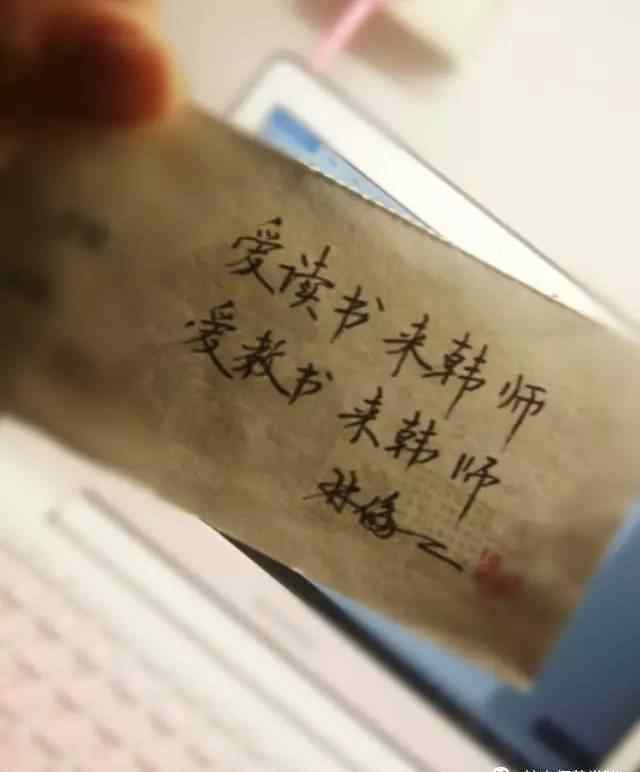 爱读书 来韩师
爱教书 来韩师
林伦